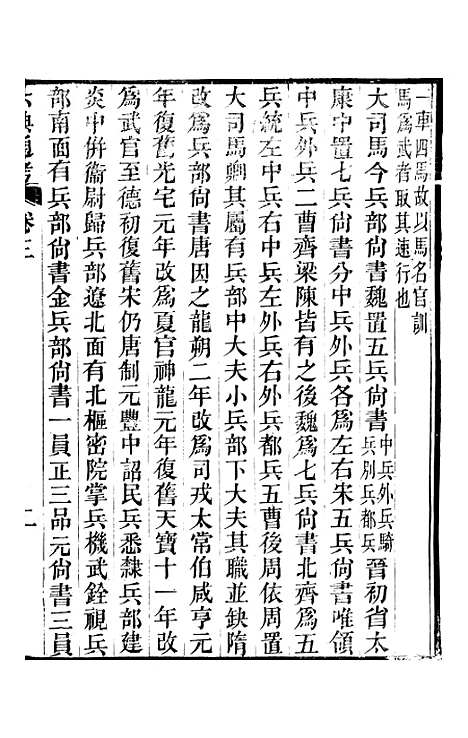 一車四馬故以馬名官訓
馬爲武者取其速行也
大司馬今兵部尙書魏置五兵尙書中兵外兵騎兵別兵都兵晉初省太
康中置七兵尙書分中兵外兵各爲左右宋五兵尙書唯領
中兵外兵二曹齊梁陳皆有之後魏爲七兵尙書北齊爲五
兵統左中兵右中兵左外兵右外兵都兵五曹後周依周置
大司馬卿其屬有兵部中大夫小兵部下大夫其職並缺隋
改爲兵部尙書唐因之龍朔二年改爲司戎太常伯咸亨元
年復舊光宅元年改爲夏官神龍元年復舊天寶十一年改
爲武官至德初復舊宋仍唐制元豐中詔民兵悉隸兵部建
炎中併衞尉歸兵部遼北面有北樞密院掌兵機武銓視兵
部南面有兵部尙書金兵部尙書一員正三品元尙書三員
六典通考
卷三
二